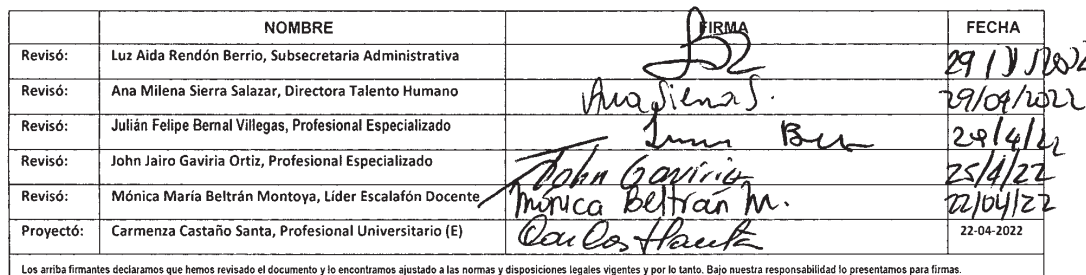 NOMBRE FIRMA FECHA
Revisó: Luz Aida Rendón Berrio, Subsecretaria Administrativa
Revisó: Ana Milena Sierra Salazar, Directora Talento Humano Ana Sierra S. 29/04/2022
Revisó: Julián Felipe Bernal Villegas, Profesional Especializado 29/4/22
Revisó: John Jairo Gaviria Ortiz, Profesional Especializado John Gaviria 25/4/22
Revisó: Mónica María Beltrán Montoya, Líder Escalafón Docente Mónica Beltrán M. 22/04/22
Proyectó: Carmenza Castaño Santa, Profesional Universitario (E) 22-04-2022
Los arriba firmantes declaramos que hemos revisado el documento y lo encontramos ajustado a las normas y disposiciones legales vigentes y por lo tanto. Bajo nuestra responsabilidad lo presentamos para firmas.